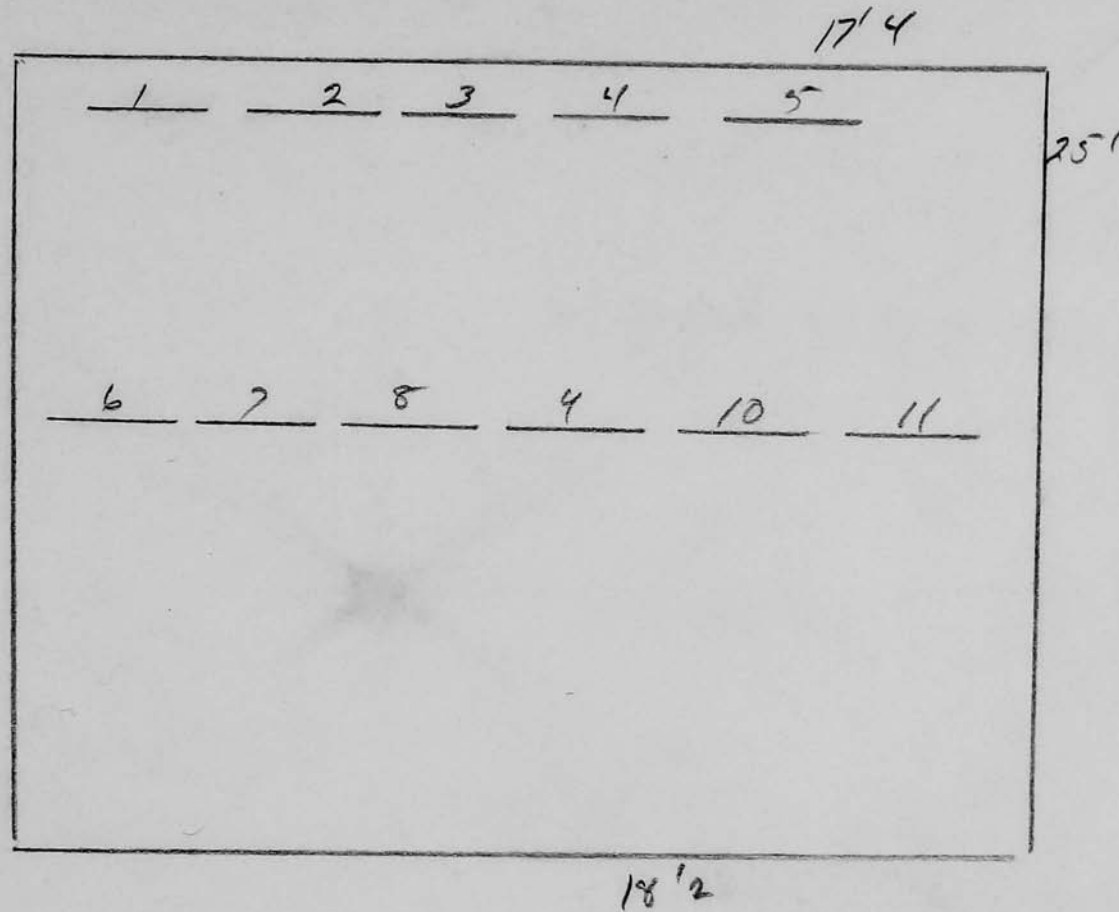 17' 4
1 2 3 4 5
25'
6 7 8 4 10 11
18' 2